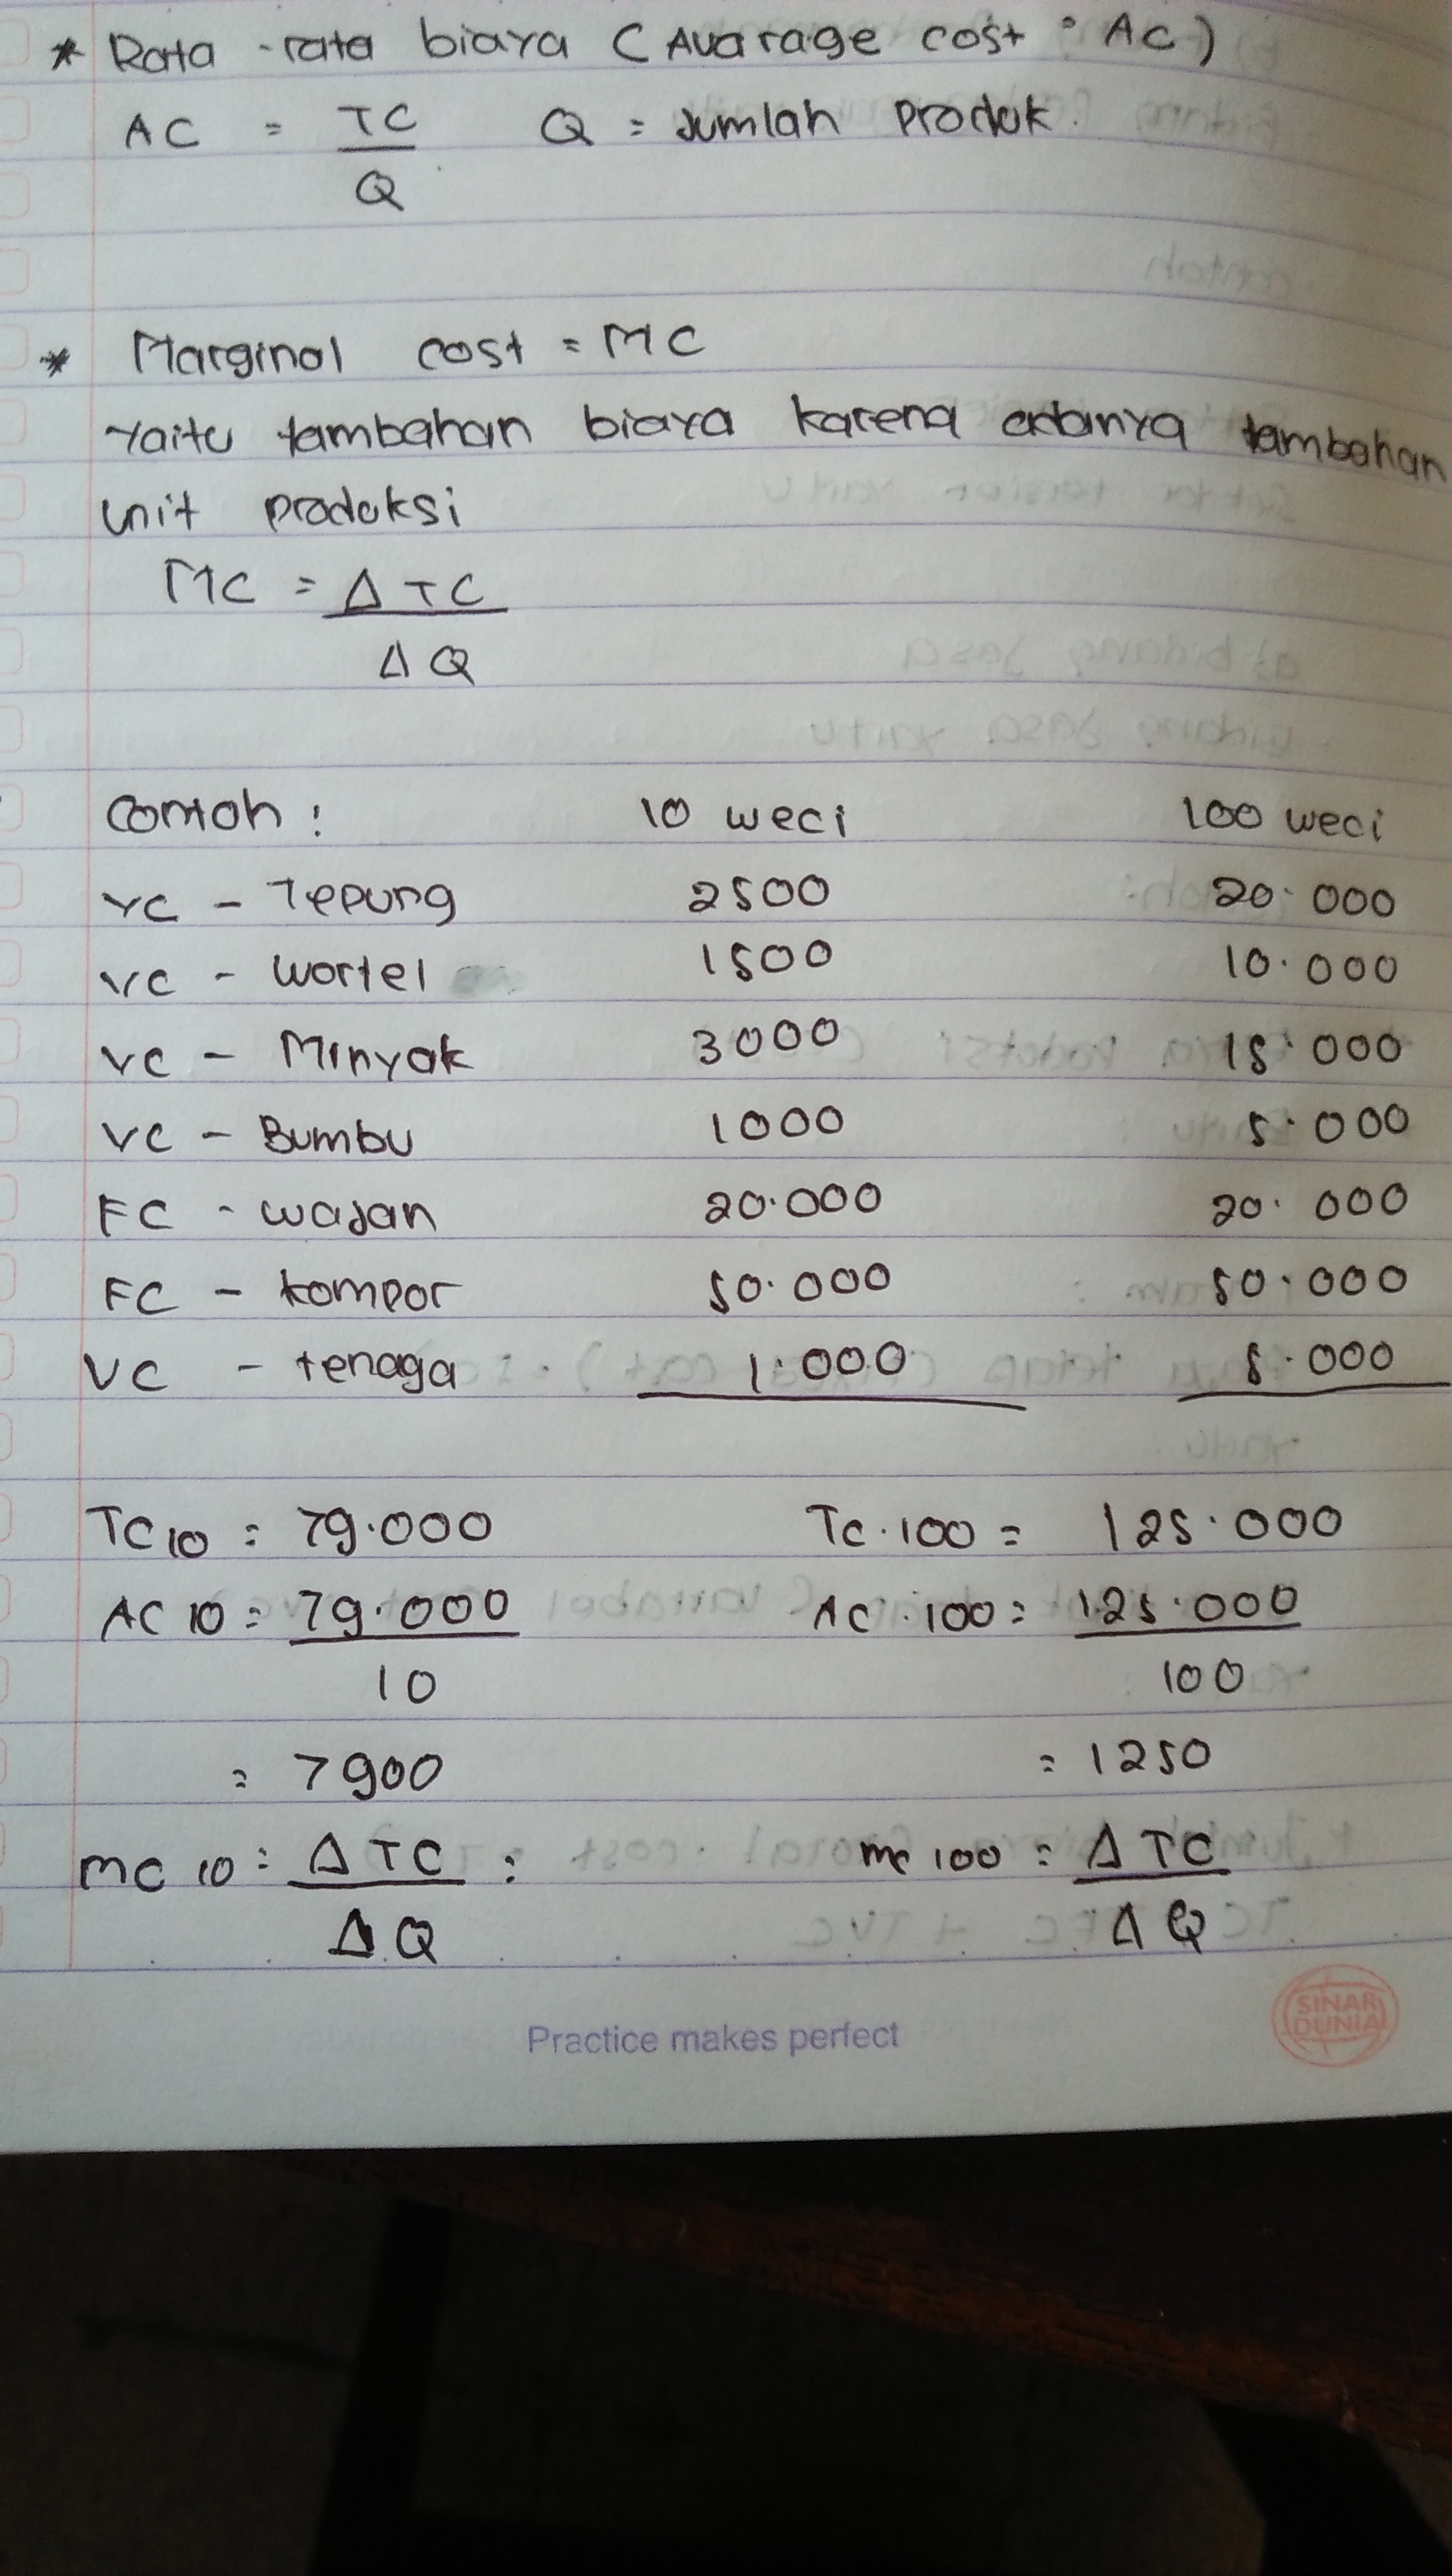 * Rata-rata biaya (Avarage cost : AC)
AC = TC / Q   Q = Jumlah Produk.
* Marginal cost = MC
Yaitu tambahan biaya karena adanya tambahan
unit produksi
MC = Δ TC / Δ Q
Contoh :   10 weci   100 weci
VC - Tepung   2500   20.000
VC - Wortel   1500   10.000
VC - Minyak   3000   15.000
VC - Bumbu   1000   5.000
FC - Wajan   20.000   20.000
FC - kompor   50.000   50.000
VC - tenaga   1.000   5.000
TC10 = 79.000   TC.100 = 125.000
AC 10 = 79.000 / 10   AC.100 = 125.000 / 100
= 7900   = 1250
MC 10 = Δ TC / Δ Q =   MC 100 = Δ TC / Δ Q
Practice makes perfect
SINAR
DUNIA